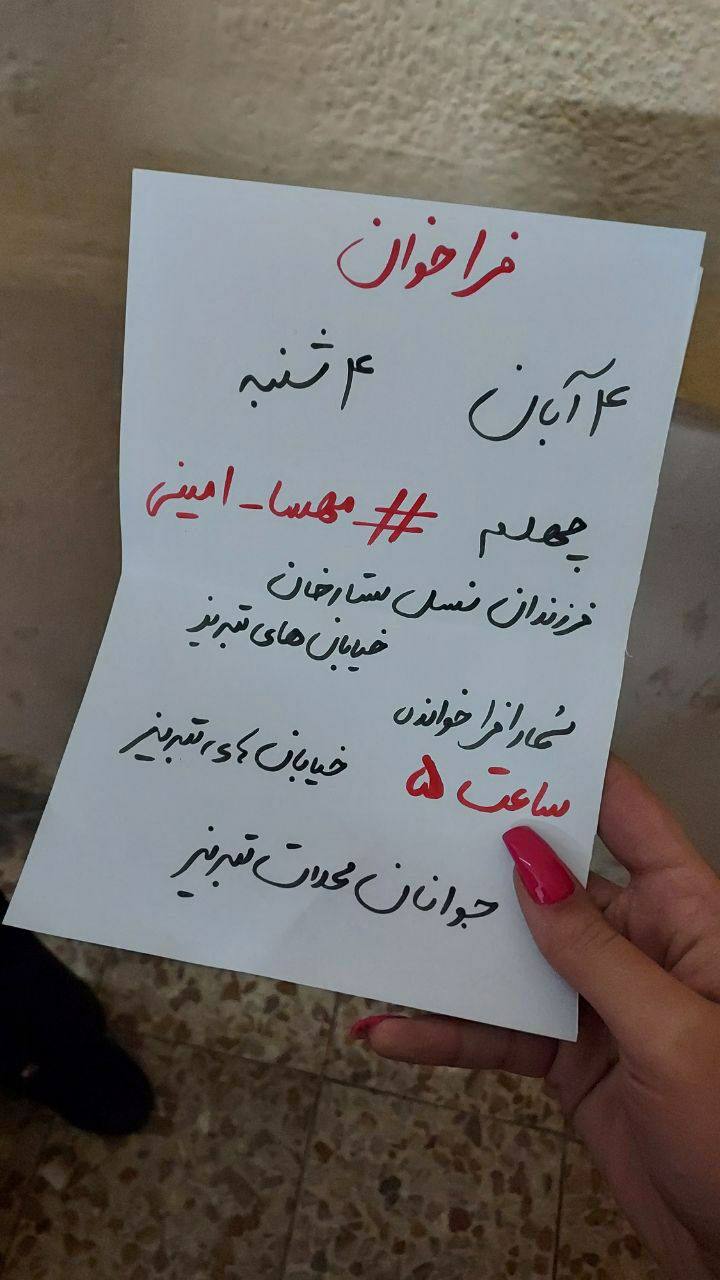 فراخوان
۴ آبان ۴ شنبه
چهلم #مهسا_امینی
فرزندان نسل ستارخان
خیابان های تبریز
شمارا فرا خوانده
ساعت ۵ خیابان های تبریز
جوانان محلات تبریز